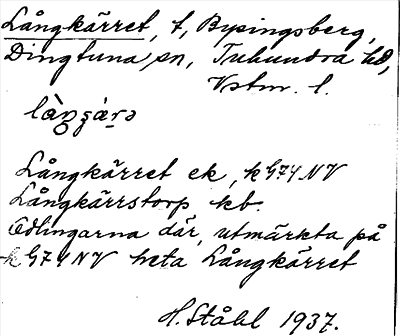 Långkärret, t, Bysingsberg,
Dingtuna sn, Tuhundra hd,
Vstm. l.
Långkärret ek, k G74 NV
Långkärrstorp kb.
Odlingarna där, utmärkta på
k G74 NV heta Långkärret
H. Ståhl 1937.